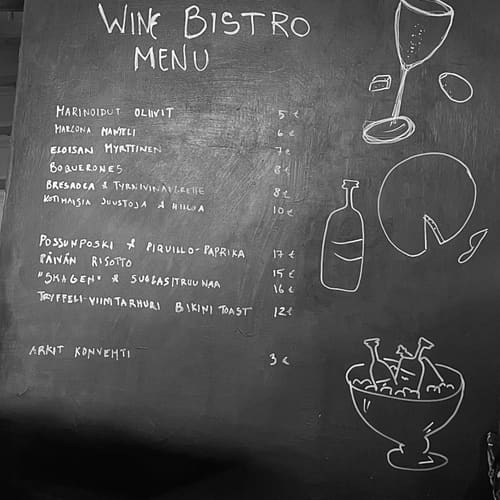 WINE BISTRO
MENU
MARINOIDUT OLIIVIT 5 €
MARCONA MANTELI 6 €
ELOISAN MYRTTINEN 7 €
BOQUERONES 8 €
BRESAOLA & 8 €
KOTIMAISIA JUUSTOJA & HILLOA 10 €
POSSUNPOSKI & PIQUILLO-PAPRIKA 17 €
PÄIVÄN RISOTTO 15 €
"SKAGEN" & SUOLASITRUUNAA 16 €
TRYFFELI-VIIMITARHURI BIKINI TOAST 12 €
ARKIT KONVEHTI 3 €